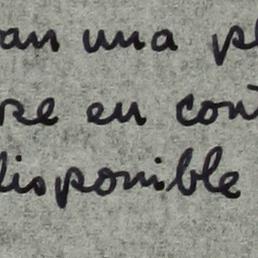 an una pl
se en cont
disponible